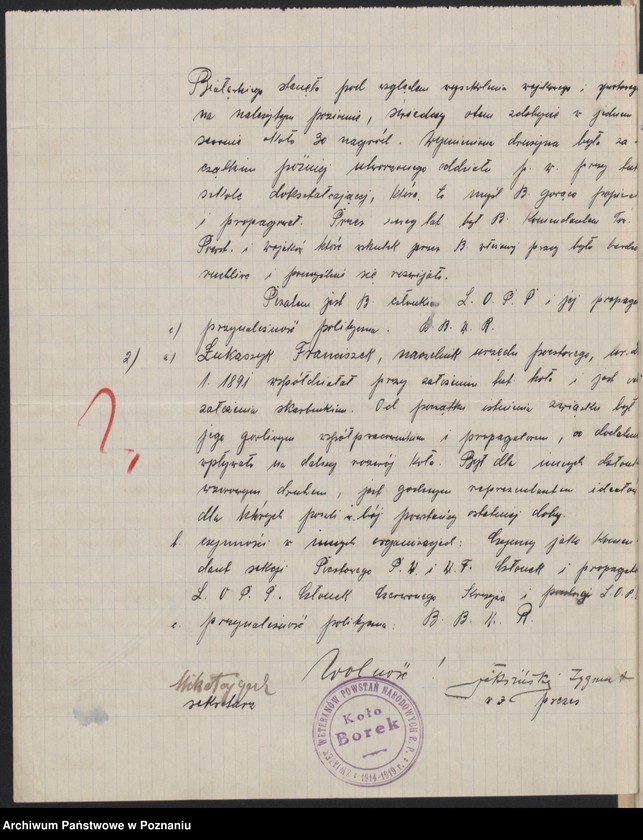 Białęskiego stanęło pod względem wyszkolenia wojskowego i sportowego
na należytym poziomie, świadczy otem zdobycie w jednem
sezonie około 30 nagród. Wymieniona drużyna była za-
czątkiem później utworzonego oddziału p. w. przy tut.
szkole dokształcającej, które to myśl B. gorąco popierał
i propagował. Przez szereg lat był B. Komendantem Tow.
Powst. i Wojaków które wskutek przez B. włożonej pracy było bardzo
ruchliwe i pomyślnie się rozwijało.
Pozatem jest B członkiem L. O. P. P i jej propaga
c) przynależność polityczna. B. B. W. R.
2) a) Łukaszyk Franciszek, naczelnik urzędu pocztowego, ur. 2.
1. 1891 współdziałał przy założeniu tut. koła i jest od
założenia skarbnikiem. Od początku istnienia związku był
jego gorliwym współpracownikiem i propagatorem, co dodatnio
wpływało na dalszy rozwój koła. Był dla innych członk
wzorowym druhem, jest godnym reprezentantem ideałów
dla których poszli w bój powstańcy ostatniej doby.
b. czynności w innych organizacjach: Czynny jako Komen-
dant sekcji Pocztowego P. W. i W. F. Członek i propagat
L. O P. P. Członek Czerwonego Krzyża i L.O.P.
c. przynależność polityczna: B. B. W. R.
Wolność!
Mikołajczak
sekretarz
Zygmunt
prezes
ZWIĄZEK WETERANÓW POWSTAŃ NARODOWYCH R. P. z r. 1914-1919
Koło
Borek
Archiwum Państwowe w Poznaniu